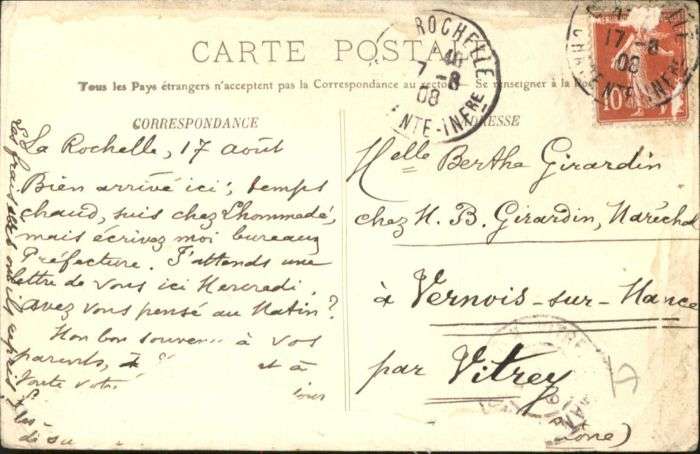 CARTE POSTALE
Tous les Pays étrangers n'acceptent pas la Correspondance au recto. Se renseigner à la
CORRESPONDANCE
ADRESSE
ROCHELLE
17-8
08
NTE-INFRE
17-8
08
10
La Rochelle, 17 août
Bien arrivé ici, temps
chaud, suis chez Lhommedé,
mais écrivez moi bureaux
Préfecture. J'attends une
lettre de vous ici Mercredi.
Avez vous pensé au Matin?
Mon bon souvenir à vos
parents, et à
toute votre
Melle Berthe Girardin
chez M. B. Girardin, Maréchal
à Vernois-sur-Mance
par Vitrey
Saône)